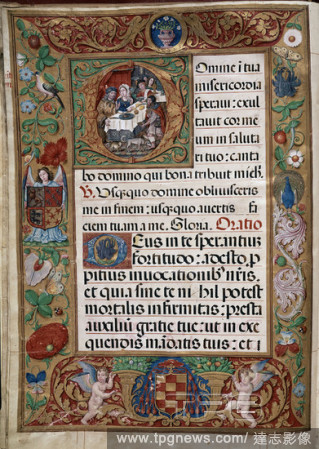 Domine i tua
misericordia
speraui: exul
tauit cor me
um in saluta
ri tuo: canta
bo domino qui bona tribuit mich.
V. Usquequo domine obliuisceris
me in finem: usquequo auertis fa
ciem tuam a me. Gloria. Oratio
Deus in te sperantium
fortitudo: adesto p
pitius inuocationib nris.
et quia sine te nihil potest
mortalis infirmitas: presta
auxilium gratie tue: ut in exe
quendis mandatis tuis: et
www.tpgnews.com/ 達志影像